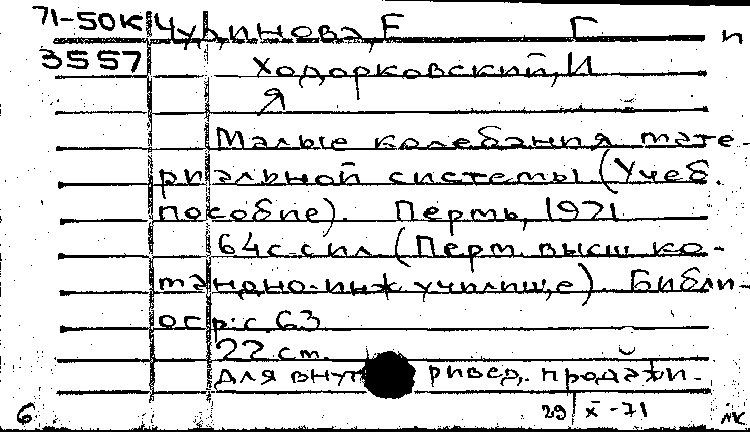 71-50К Чудинова, Е Г п
3557 Ходорковский, И
Я
Малые колебания мате-
риальной системы (Учеб.
пособие). Пермь, 1971
64с. с ил (Перм. высш ко-
мандно-инж училище) Библи-
огр: с 63
22 см.
для внут ривед. продажи.
6 29/X-71 мк